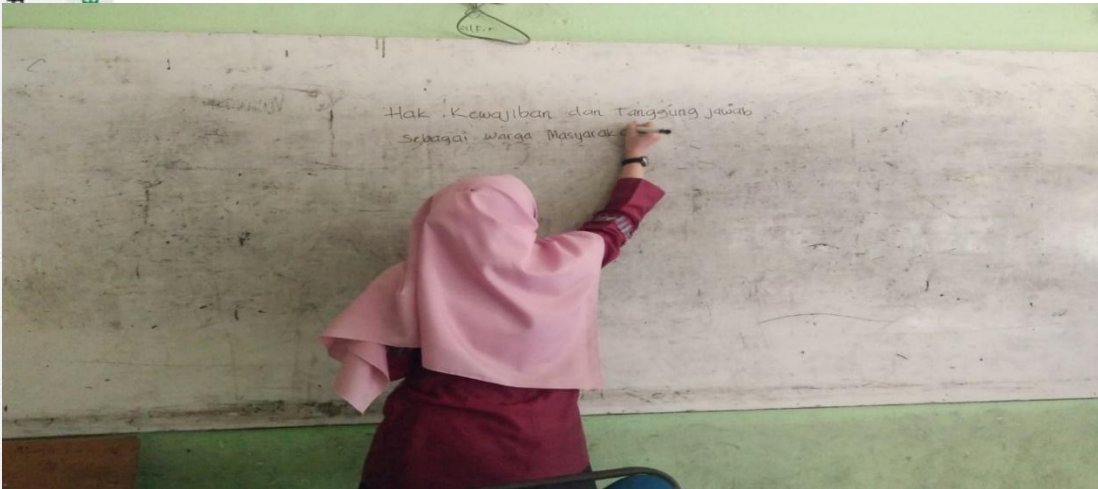 Hak, Kewajiban dan Tanggung jawab
Sebagai warga Masyarak